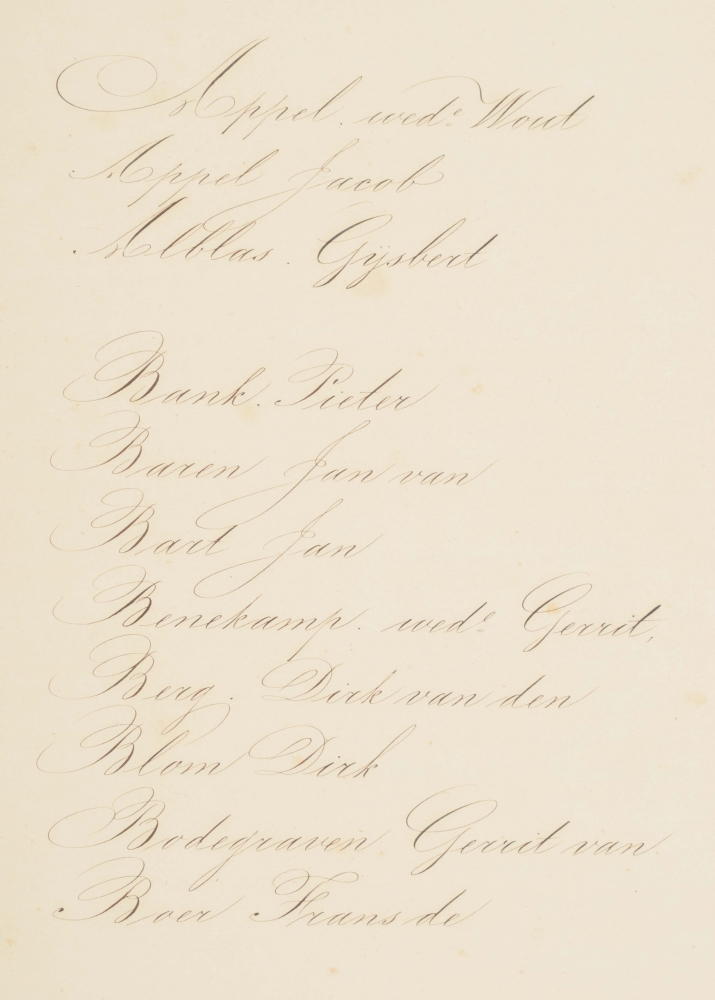 Appel. wedᵉ Wout
Appel Jacob
Alblas. Gijsbert
Bank. Pieter
Baren Jan van
Bart Jan
Benekamp. wedᵉ Gerrit,
Berg. Dirk van den
Blom Dirk
Bodegraven Gerrit van
Boer Frans de